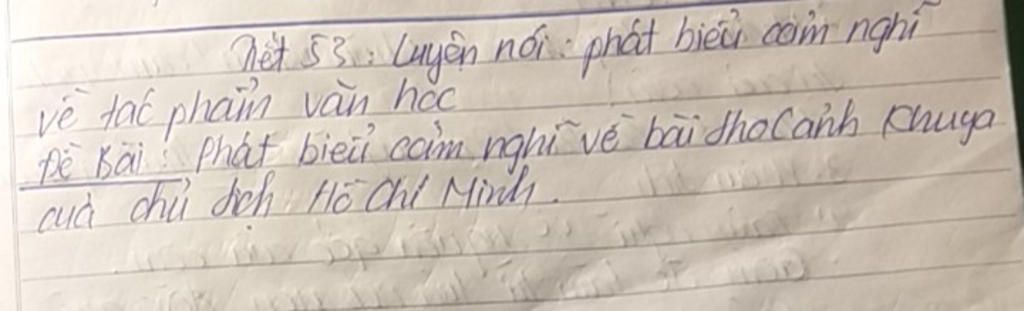 Tiết 53: Luyện nói: phát biểu cảm nghĩ
về tác phẩm văn học
Đề Bài: Phát biểu cảm nghĩ về bài thơ Cảnh Khuya
của chủ tịch Hồ Chí Minh.